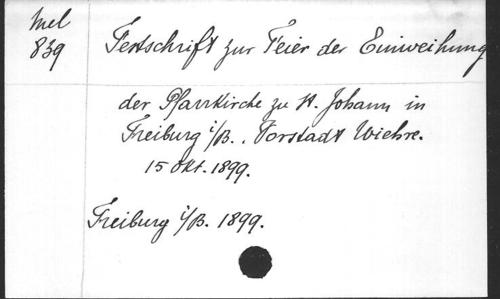 Mel
839
Festschrift zur Feier der Einweihung
der Pfarrkirche zu St. Johann in
Freiburg i/B., Vorstadt Wiehre.
15 Okt. 1899.
Freiburg i/B. 1899.